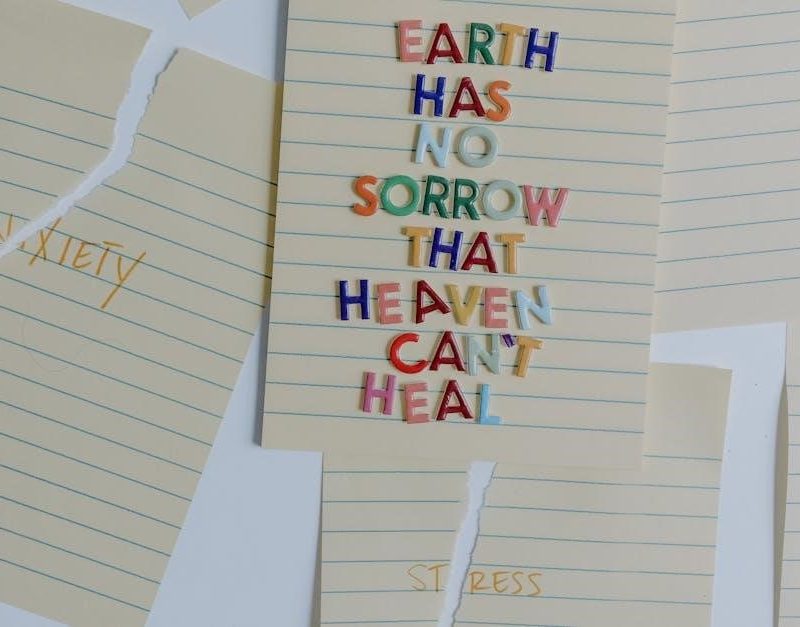 EARTH
HAS
NO
SORROW
THAT
HEAVEN
CAN'T
HEAL
ANXIETY
STRESS